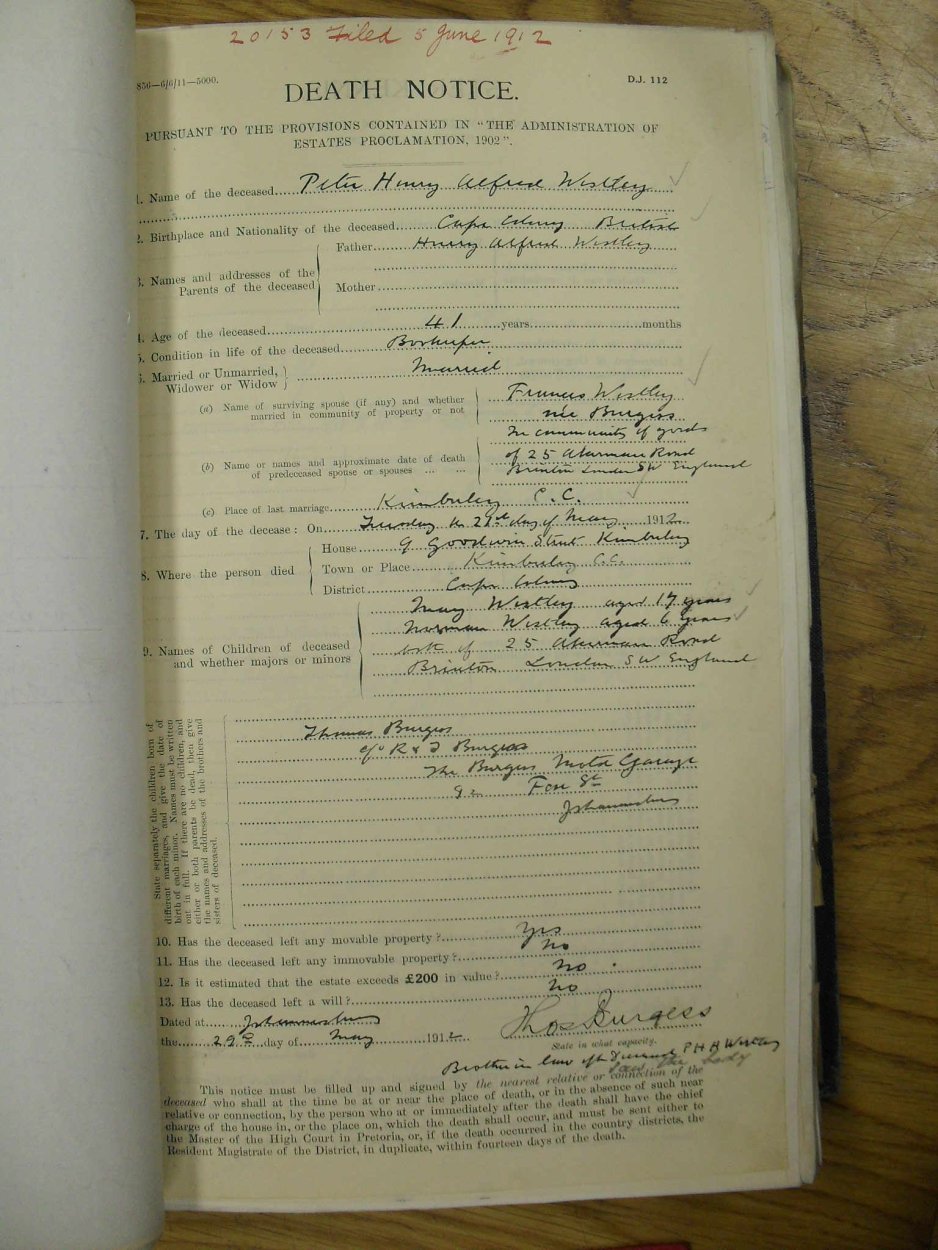 20153 Filed 5 June 1912
856—6/6/11—5000.
D.J. 112
DEATH NOTICE.
PURSUANT TO THE PROVISIONS CONTAINED IN "THE ADMINISTRATION OF
ESTATES PROCLAMATION, 1902".
1. Name of the deceased Peter Henry Alfred Westley
2. Birthplace and Nationality of the deceased Cape Colony British
3. Names and addresses of the Parents of the deceased
Father Henry Alfred Westley
Mother
4. Age of the deceased 41 years months
5. Condition in life of the deceased Bookeeper
6. Married or Unmarried, Widower or Widow Married
(a) Name of surviving spouse (if any) and whether married in community of property or not
Frances Westley
née Burgess
In community of goods
of 25 Akerman Road
Brixton London SW England
(b) Name or names and approximate date of death of predeceased spouse or spouses ... ...
(c) Place of last marriage Kimberley C.C.
7. The day of the decease: On Tuesday the day of May 1912
8. Where the person died
House 9 Goodwin Street Kimberley
Town or Place Kimberley C.C.
District Cape Colony
9. Names of Children of deceased and whether majors or minors
Mary Westley aged 17 years
Norman Westley aged 6 years
both of 25 Akerman Road
Brixton London SW England
State separately the children born of
different marriages, and give the date of
birth of each minor. Names must be written
out in full. If there are no children, and
either or both parents be dead, then give
the names and addresses of the brothers and
sisters of deceased.
Thomas Burgess
c/o R & T Burgess
The Burgess Motor Garage
Fox St
Johannesburg
10. Has the deceased left any movable property? Yes
11. Has the deceased left any immovable property? No
12. Is it estimated that the estate exceeds £200 in value? No
13. Has the deceased left a will? No
Dated at Johannesburg
the 29th day of May 1912
Thos Burgess
State in what capacity.
Brother in law of P H A Westley
the body
This notice must be filled up and signed by the nearest relative or connection of the
deceased who shall at the time be at or near the place of death, or in the absence of such near
relative or connection, by the person who at or immediately after the death shall have the chief
charge of the house in, or the place on, which the death shall occur, and must be sent either to
the Master of the High Court in Pretoria, or, if the death occurred in the country districts, the
Resident Magistrate of the District, in duplicate, within fourteen days of the death.